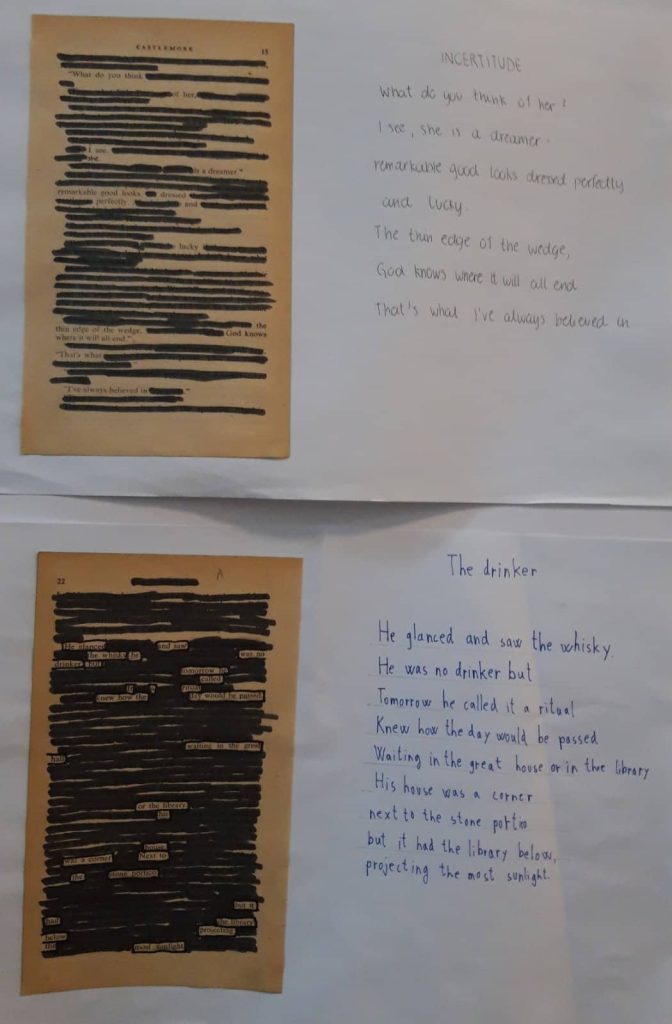 CASTLEMORE 15
"What do you think
of her,
I see.
she
is a dreamer."
remarkable good looks dressed
perfectly and
lucky
thin edge of the wedge, the
God knows
where it will all end."
"That's what
"I've always believed in ."
INCERTITUDE
What do you think of her?
I see, she is a dreamer.
remarkable good looks dressed perfectly
and lucky.
The thin edge of the wedge,
God knows where it will all end
That's what I've always believed in
22
He glanced and saw
the whisky. He was no
drinker but tomorrow he
called
it a ritual
knew how the day would be passed
waiting in the great
hall
or the library
his
house
was a corner Next to
the stone portico
but it
had the library
below projecting
the most sunlight
The drinker
He glanced and saw the whisky.
He was no drinker but
Tomorrow he called it a ritual
Knew how the day would be passed
Waiting in the great house or in the library
His house was a corner
next to the stone portico
but it had the library below,
projecting the most sunlight.